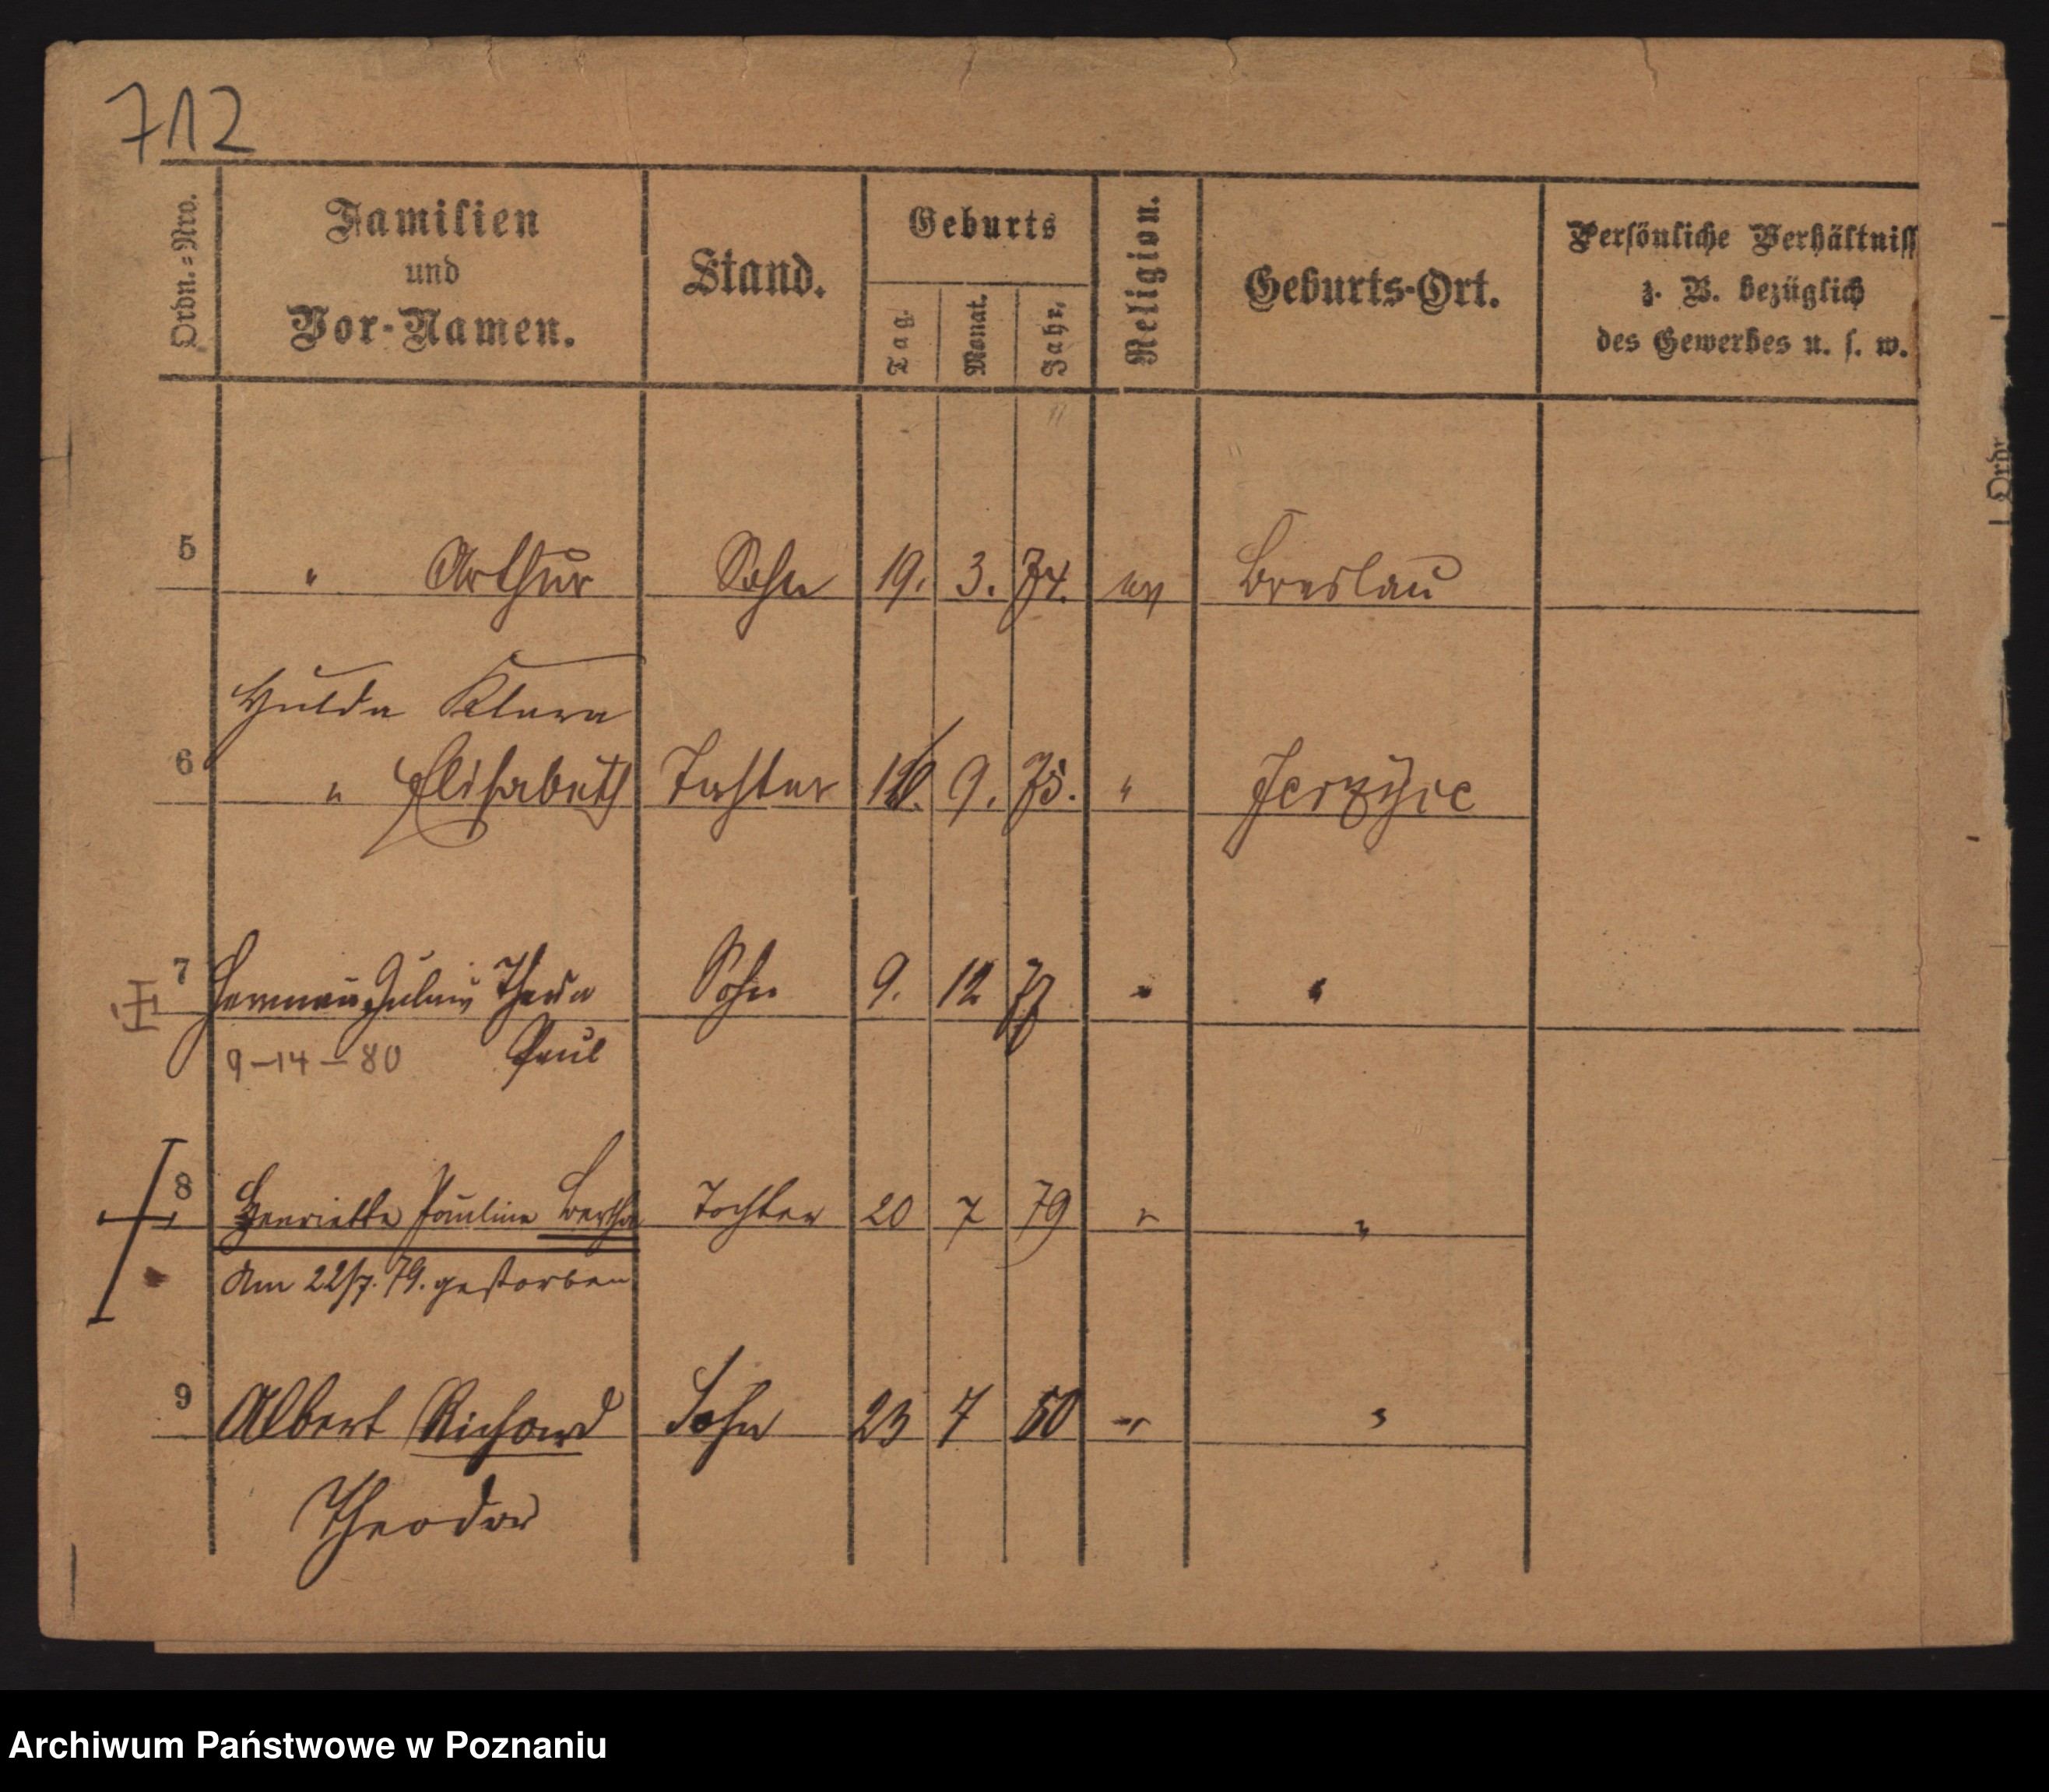 712
Ordn.=Nro. Familien und Vor-Namen. Stand. Geburts Tag. Monat. Jahr. Religion. Geburts-Ort. Persönliche Verhältniss z. B. bezüglich des Gewerbes u. s. w.
Ordn
5 " Arthur Sohn 19. 3. 74. ev Breslau
Hulda Klara
6 " Elisabeth Tochter 9. 75. " Jerzyce
7 Herman Julius Sohn 9. 12 77 " "
9-14-80 Paul
8 Henriette Pauline Bertha Tochter 20 7 79 " "
Am 22/7. 79. gestorben
9 Albert Richard Sohn 23 7 80 " "
Theodor
Archiwum Państwowe w Poznaniu